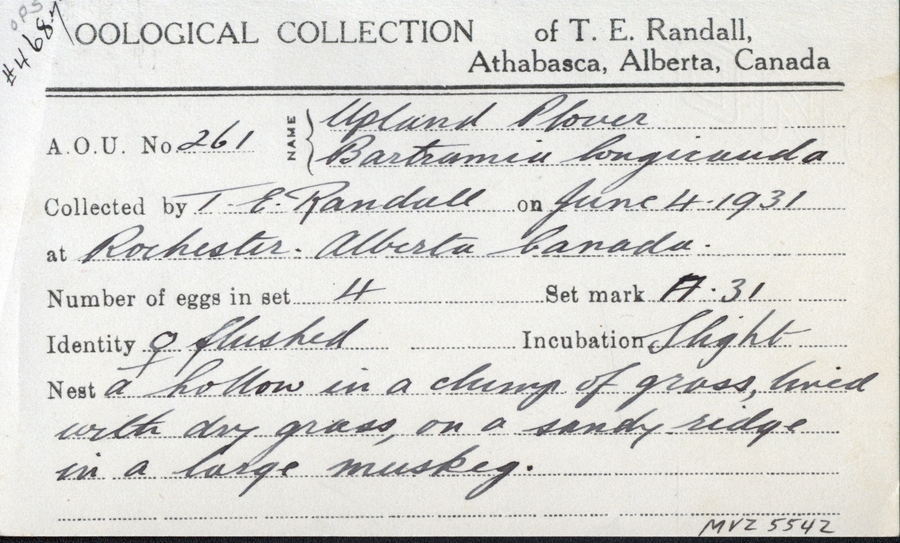 OPS
#4687
OOLOGICAL COLLECTION of T. E. Randall,
Athabasca, Alberta, Canada
A.O.U. No. 261 NAME Upland Plover
Bartramia longicauda
Collected by T. E. Randall on June 4. 1931
at Rochester. Alberta Canada.
Number of eggs in set 4 Set mark A. 31
Identity ♀ flushed Incubation Slight
Nest a hollow in a clump of grass, lined
with dry grass, on a sandy ridge
in a large muskeg.
MVZ 5542